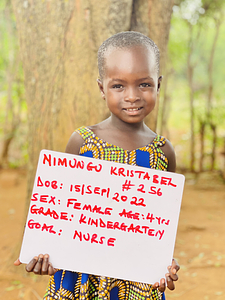 NIMUNGU KRISTABEL
# 256
DOB: 15|SEP| 2022
SEX: FEMALE AGE: 4yrs
GRADE: KINDERGARTEN
GOAL: NURSE